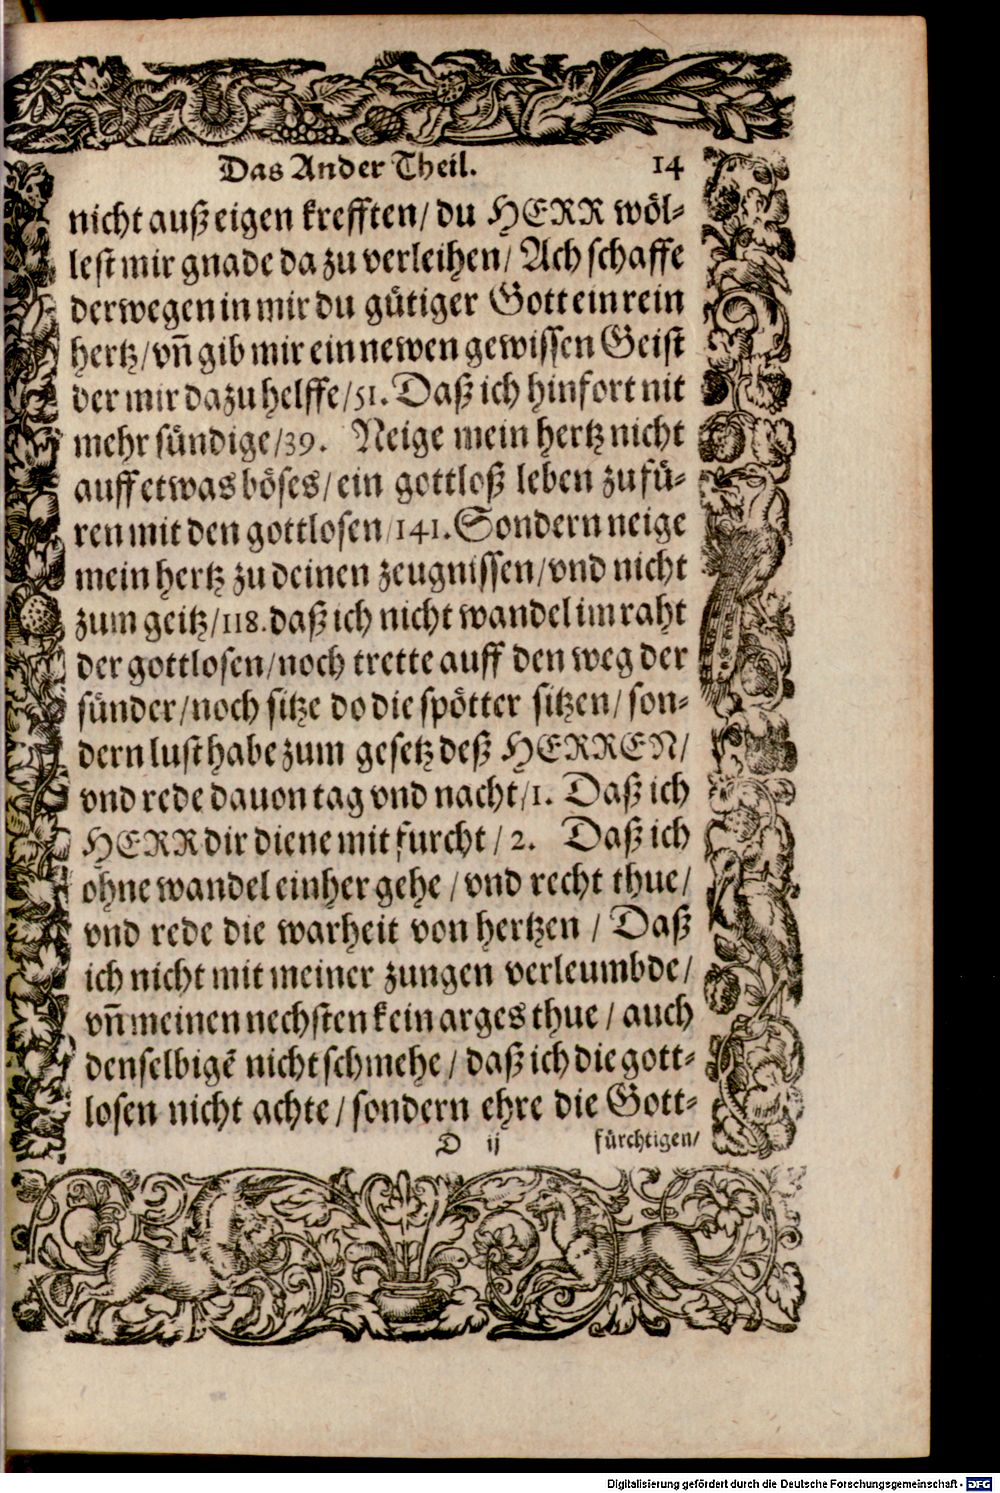 Das Ander Theil. 14
nicht auß eigen krefften/ du HERR wöl-
lest mir gnade da zu verleihen/ Ach schaffe
derwegen in mir du gütiger Gott ein rein
hertz/ vñ gib mir ein newen gewissen Geist
der mir dazu helffe/51. Daß ich hinfort nit
mehr sündige/39. Neige mein hertz nicht
auff etwas böses/ ein gottloß leben zu fü-
ren mit den gottlosen/141. Sondern neige
mein hertz zu deinen zeugnissen/vnd nicht
zum geitz/118. daß ich nicht wandel im raht
der gottlosen/noch trette auff den weg der
sünder/noch sitze do die spötter sitzen/ son-
dern lust habe zum gesetz deß HERREN/
vnd rede dauon tag vnd nacht/1. Daß ich
HERR dir diene mit furcht / 2. Daß ich
ohne wandel einher gehe / vnd recht thue/
vnd rede die warheit von hertzen / Daß
ich nicht mit meiner zungen verleumbde/
vñ meinen nechsten kein arges thue / auch
denselbigẽ nicht schmehe / daß ich die gott-
losen nicht achte / sondern ehre die Gott-
D ij fürchtigen/
Digitalisierung gefördert durch die Deutsche Forschungsgemeinschaft - DFG